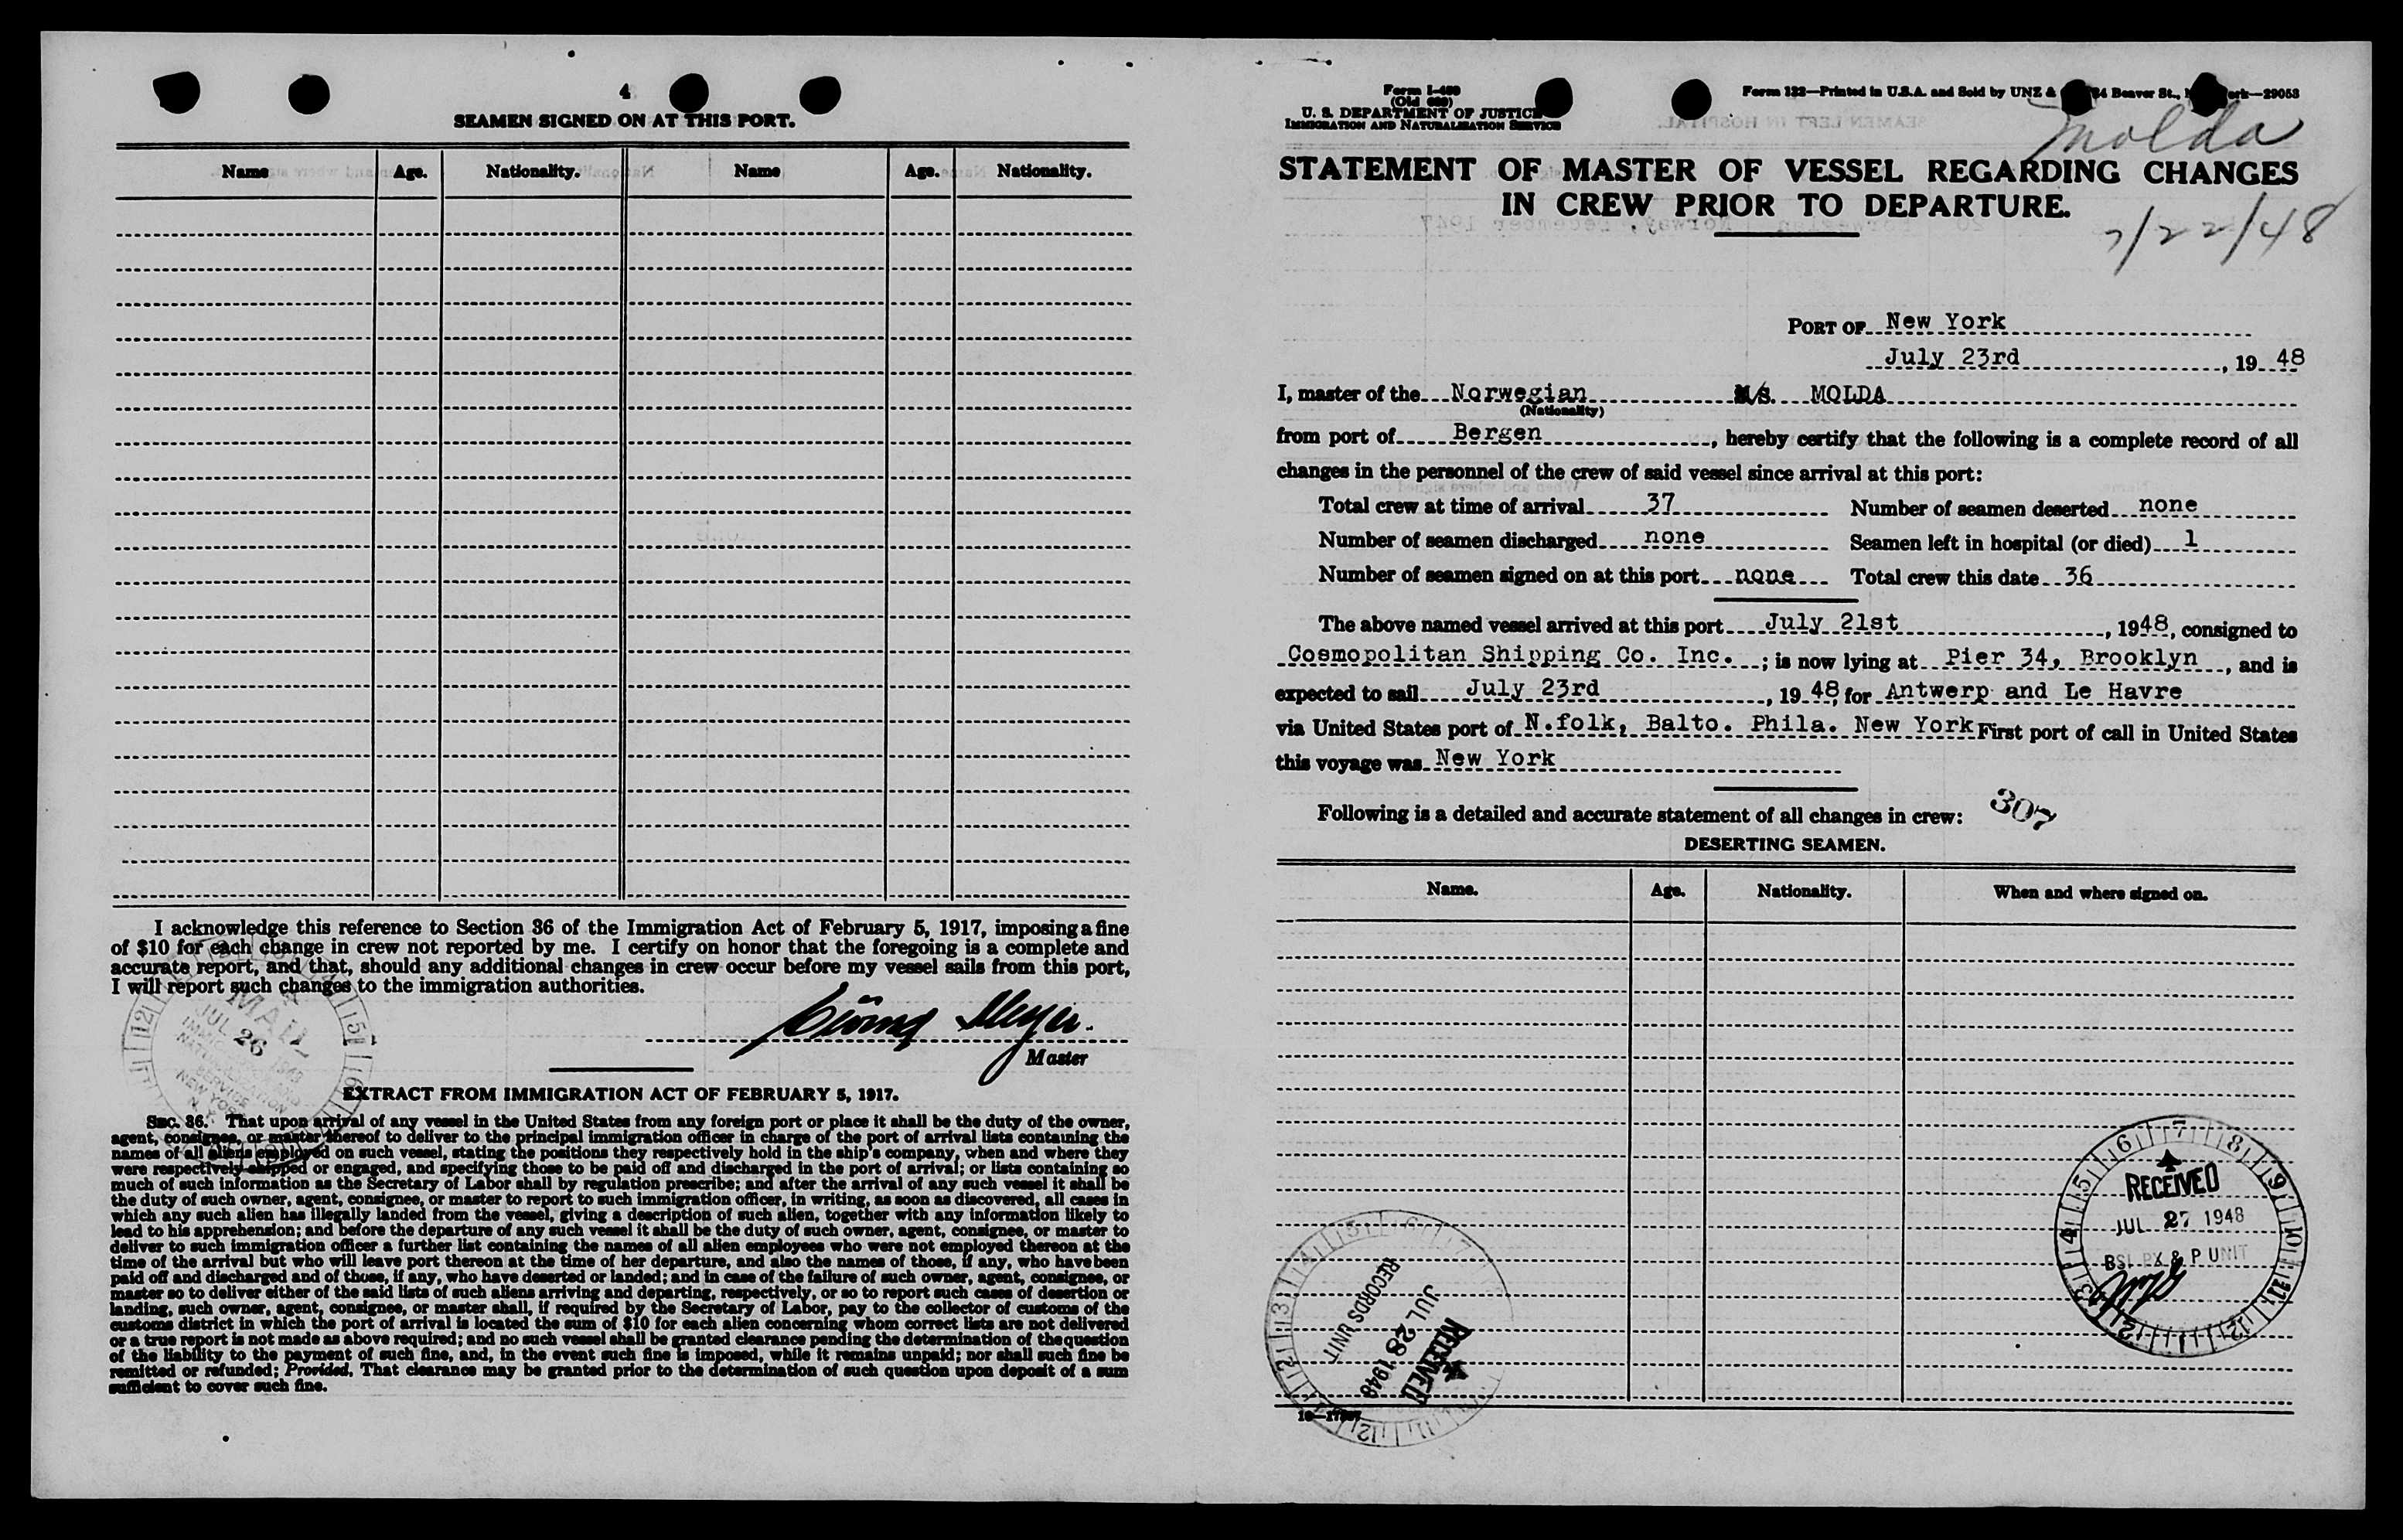 4
SEAMEN SIGNED ON AT THIS PORT.
Name Age. Nationality. Name Age. Nationality.
I acknowledge this reference to Section 36 of the Immigration Act of February 5, 1917, imposing a fine
of $10 for each change in crew not reported by me. I certify on honor that the foregoing is a complete and
accurate report, and that, should any additional changes in crew occur before my vessel sails from this port,
I will report such changes to the immigration authorities.
Master
MAIL
JUL 26 1948
IMMIGRATION AND
NATURALIZATION
SERVICE
NEW YORK
N.Y.
EXTRACT FROM IMMIGRATION ACT OF FEBRUARY 5, 1917.
SEC. 36. That upon arrival of any vessel in the United States from any foreign port or place it shall be the duty of the owner,
agent, consignee, or master thereof to deliver to the principal immigration officer in charge of the port of arrival lists containing the
names of all aliens employed on such vessel, stating the positions they respectively hold in the ship's company, when and where they
were respectively shipped or engaged, and specifying those to be paid off and discharged in the port of arrival; or lists containing so
much of such information as the Secretary of Labor shall by regulation prescribe; and after the arrival of any such vessel it shall be
the duty of such owner, agent, consignee, or master to report to such immigration officer, in writing, as soon as discovered, all cases in
which any such alien has illegally landed from the vessel, giving a description of such alien, together with any information likely to
lead to his apprehension; and before the departure of any such vessel it shall be the duty of such owner, agent, consignee, or master to
deliver to such immigration officer a further list containing the names of all alien employees who were not employed thereon at the
time of the arrival but who will leave port thereon at the time of her departure, and also the names of those, if any, who have been
paid off and discharged and of those, if any, who have deserted or landed; and in case of the failure of such owner, agent, consignee, or
master so to deliver either of the said lists of such aliens arriving and departing, respectively, or so to report such cases of desertion or
landing, such owner, agent, consignee, or master shall, if required by the Secretary of Labor, pay to the collector of customs of the
customs district in which the port of arrival is located the sum of $10 for each alien concerning whom correct lists are not delivered
or a true report is not made as above required; and no such vessel shall be granted clearance pending the determination of the question
of the liability to the payment of such fine, and, in the event such fine is imposed, while it remains unpaid; nor shall such fine be
remitted or refunded; Provided, That clearance may be granted prior to the determination of such question upon deposit of a sum
sufficient to cover such fine.
Form I-489
(Old 689)
U. S. DEPARTMENT OF JUSTICE
IMMIGRATION AND NATURALIZATION SERVICE
Form 132—Printed in U.S.A. and Sold by UNZ & 24 Beaver St., —29053
Molda
STATEMENT OF MASTER OF VESSEL REGARDING CHANGES
IN CREW PRIOR TO DEPARTURE.
7/22/48
PORT OF New York
July 23rd, 19 48
I, master of the Norwegian M/S. MOLDA
(Nationality)
from port of Bergen, hereby certify that the following is a complete record of all
changes in the personnel of the crew of said vessel since arrival at this port:
Total crew at time of arrival 37 Number of seamen deserted none
Number of seamen discharged none Seamen left in hospital (or died) 1
Number of seamen signed on at this port none Total crew this date 36
The above named vessel arrived at this port July 21st, 1948, consigned to
Cosmopolitan Shipping Co. Inc. ; is now lying at Pier 34, Brooklyn, and is
expected to sail July 23rd, 19 48 for Antwerp and Le Havre
via United States port of N.folk, Balto. Phila. New York First port of call in United States
this voyage was New York
Following is a detailed and accurate statement of all changes in crew: 307
DESERTING SEAMEN.
Name. Age. Nationality. When and where signed on.
RECEIVED
JUL 27 1948
BSI PX & P UNIT
RECEIVED
JUL 28 1948
RECORDS UNIT